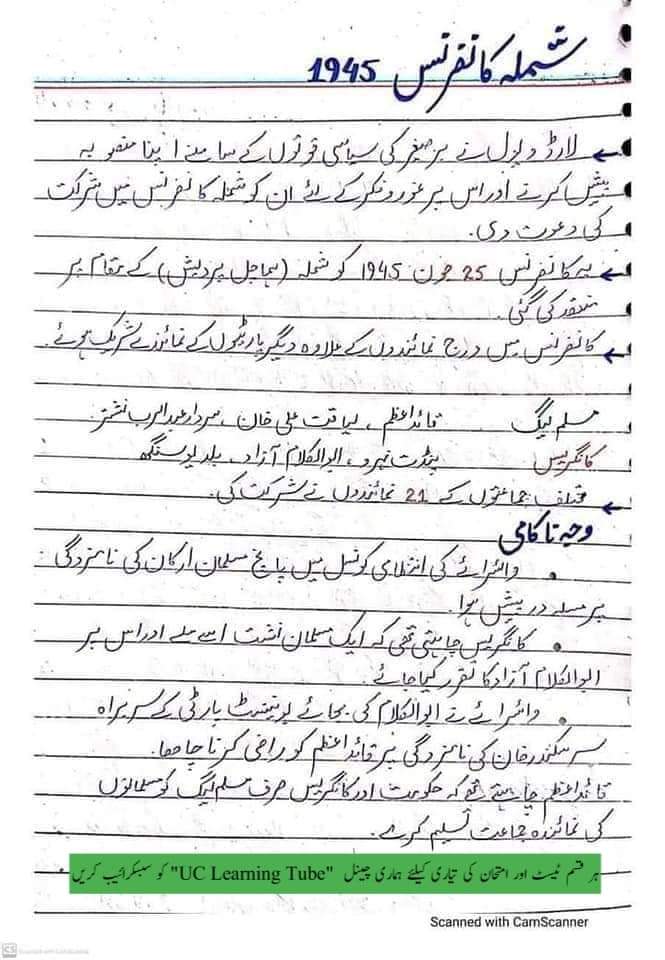 شملہ کانفرنس 1945
← لارڈ ویول نے برصغیر کی سیاسی قوتوں کے سامنے اپنا منصوبہ
پیش کرنے اور اس پر غور و فکر کے لئے ان کو شملہ کانفرنس میں شرکت
کی دعوت دی۔
← یہ کانفرنس 25 جون 1945 کو شملہ (ہماچل پردیش) کے مقام پر
منعقد کی گئی۔
← کانفرنس میں درج نمائندوں کے علاوہ دیگر پارٹیوں کے نمائندے شریک ہوئے۔
مسلم لیگ قائداعظم ، لیاقت علی خان ، سردار عبدالرب نشتر
کانگریس پنڈت نہرو ، ابوالکلام آزاد ، بلدیو سنگھ
← مختلف جماعتوں کے 21 نمائندوں نے شرکت کی۔
وجہ ناکامی
• وائسرائے کی انتظامی کونسل میں پانچ مسلمان ارکان کی نامزدگی
پر مسلہ درپیش ہوا۔
• کانگریس چاہتی تھی کہ ایک مسلمان نشت اسے ملے اور اس پر
ابوالکلام آزاد کا تقرر کیا جائے۔
• وائسرائے نے ابوالکلام کی بجائے یونینسٹ پارٹی کے سربراہ
سر سکندر خان کی نامزدگی پر قائداعظم کو راضی کرنا چاہا۔
قائداعظم چاہتے تھے کہ حکومت اور کانگریس صرف مسلم لیگ کو مسلمانوں
کی نمائندہ جماعت تسلیم کرے۔
ہر قسم ٹیسٹ اور امتحان کی تیاری کیلئے ہماری چینل "UC Learning Tube" کو سبسکرائیب کریں
Scanned with CamScanner
CS Scanned with CamScanner